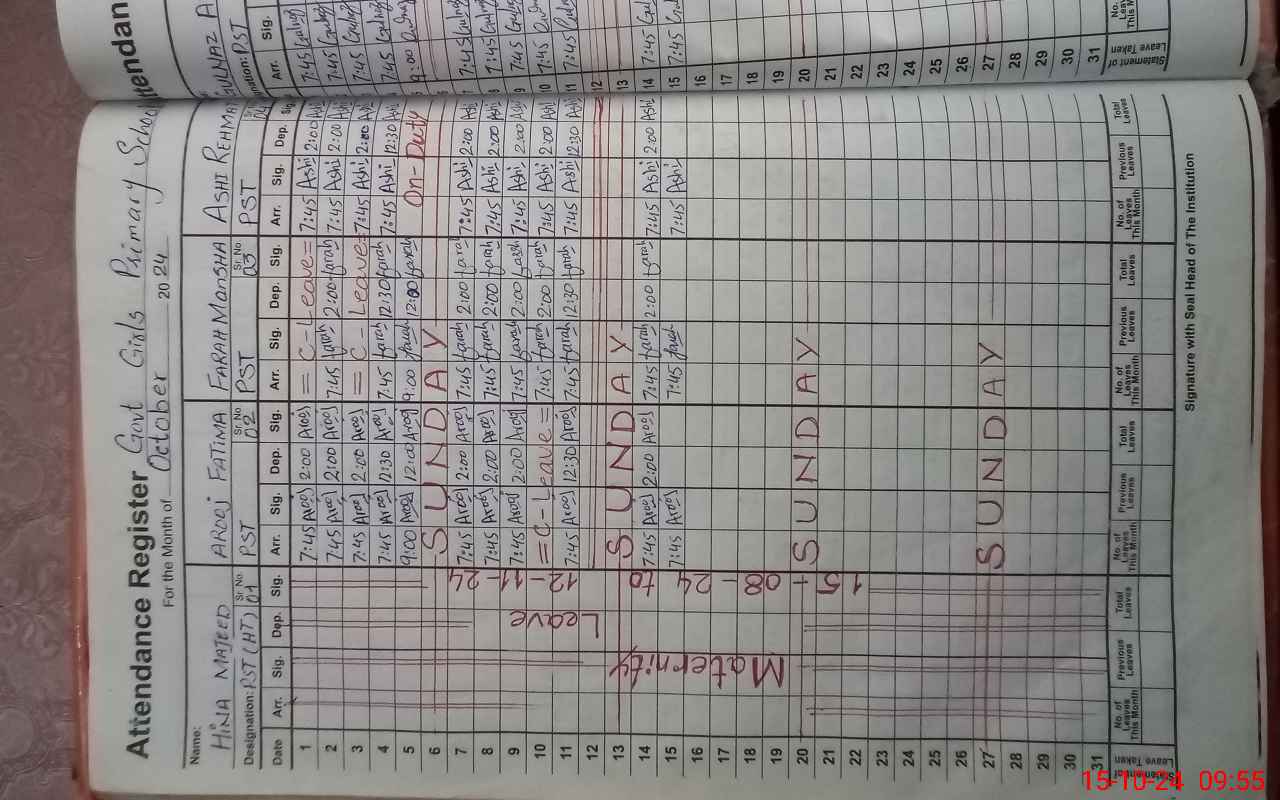 Attendance Register Govt Girls Primary School
For the Month of October 2024
Name: HINA MAJEED AROOJ FATIMA FARAH MANSHA ASHI REHMAT
Designation: PST (HT) Sr. No. 01 PST Sr. No 02 PST Sr. No 03 PST Sr. No 04
Date Arr. Sig. Dep. Sig. Arr. Sig. Dep. Sig. Arr. Sig. Dep. Sig. Arr. Sig. Dep. Sig.
1 7:45 Arooj 2:00 Arooj = C - Leave = 7:45 Ashi 2:00 Ashi
2 7:45 Arooj 2:00 Arooj 7:45 farah 2:00 farah 7:45 Ashi 2:00 Ashi
3 7:45 Arooj 2:00 Arooj = C - Leave = 7:45 Ashi 2:00 Ashi
4 7:45 Arooj 12:30 Arooj 7:45 farah 12:30 farah 7:45 Ashi 12:30 Ashi
5 9:00 Arooj 12:00 Arooj 9:00 farah 12:00 farah On-Duty
6 SUNDAY
7 7:45 Arooj 2:00 Arooj 7:45 farah 2:00 farah 7:45 Ashi 2:00 Ashi
8 7:45 Arooj 2:00 Arooj 7:45 farah 2:00 farah 7:45 Ashi 2:00 Ashi
9 7:45 Arooj 2:00 Arooj 7:45 farah 2:00 farah 7:45 Ashi 2:00 Ashi
10 = C - Leave = 7:45 farah 2:00 farah 7:45 Ashi 2:00 Ashi
11 7:45 Arooj 12:30 Arooj 7:45 farah 12:30 farah 7:45 Ashi 12:30 Ashi
12
13 SUNDAY
14 7:45 Arooj 2:00 Arooj 7:45 farah 2:00 farah 7:45 Ashi 2:00 Ashi
15 7:45 Arooj 7:45 farah 7:45 Ashi
16
17
18
19
20 SUNDAY
21
22
23
24
25
26
27 SUNDAY
28
29
30
31
Maternity Leave
15-08-24 to 12-11-24
Statement of Leave Taken No. of Leaves This Month Previous Leaves Total Leaves No. of Leaves This Month Previous Leaves Total Leaves No. of Leaves This Month Previous Leaves Total Leaves No. of Leaves This Month Previous Leaves Total Leaves
Signature with Seal Head of The Institution
Attendan
GULNAZ A
PST
Arr. Sig.
1 7:45
2 7:45
3 7:45
4 7:45
5 9:00
7 7:45
8 7:45
9 7:45
10 7:45
11 7:45
12
13
14 7:45
15 7:45
16
17
18
19
20
21
22
23
24
25
26
27
28
29
30
31
Statement of Leave Taken
No. of Leaves This Month
15-10-24 09:55